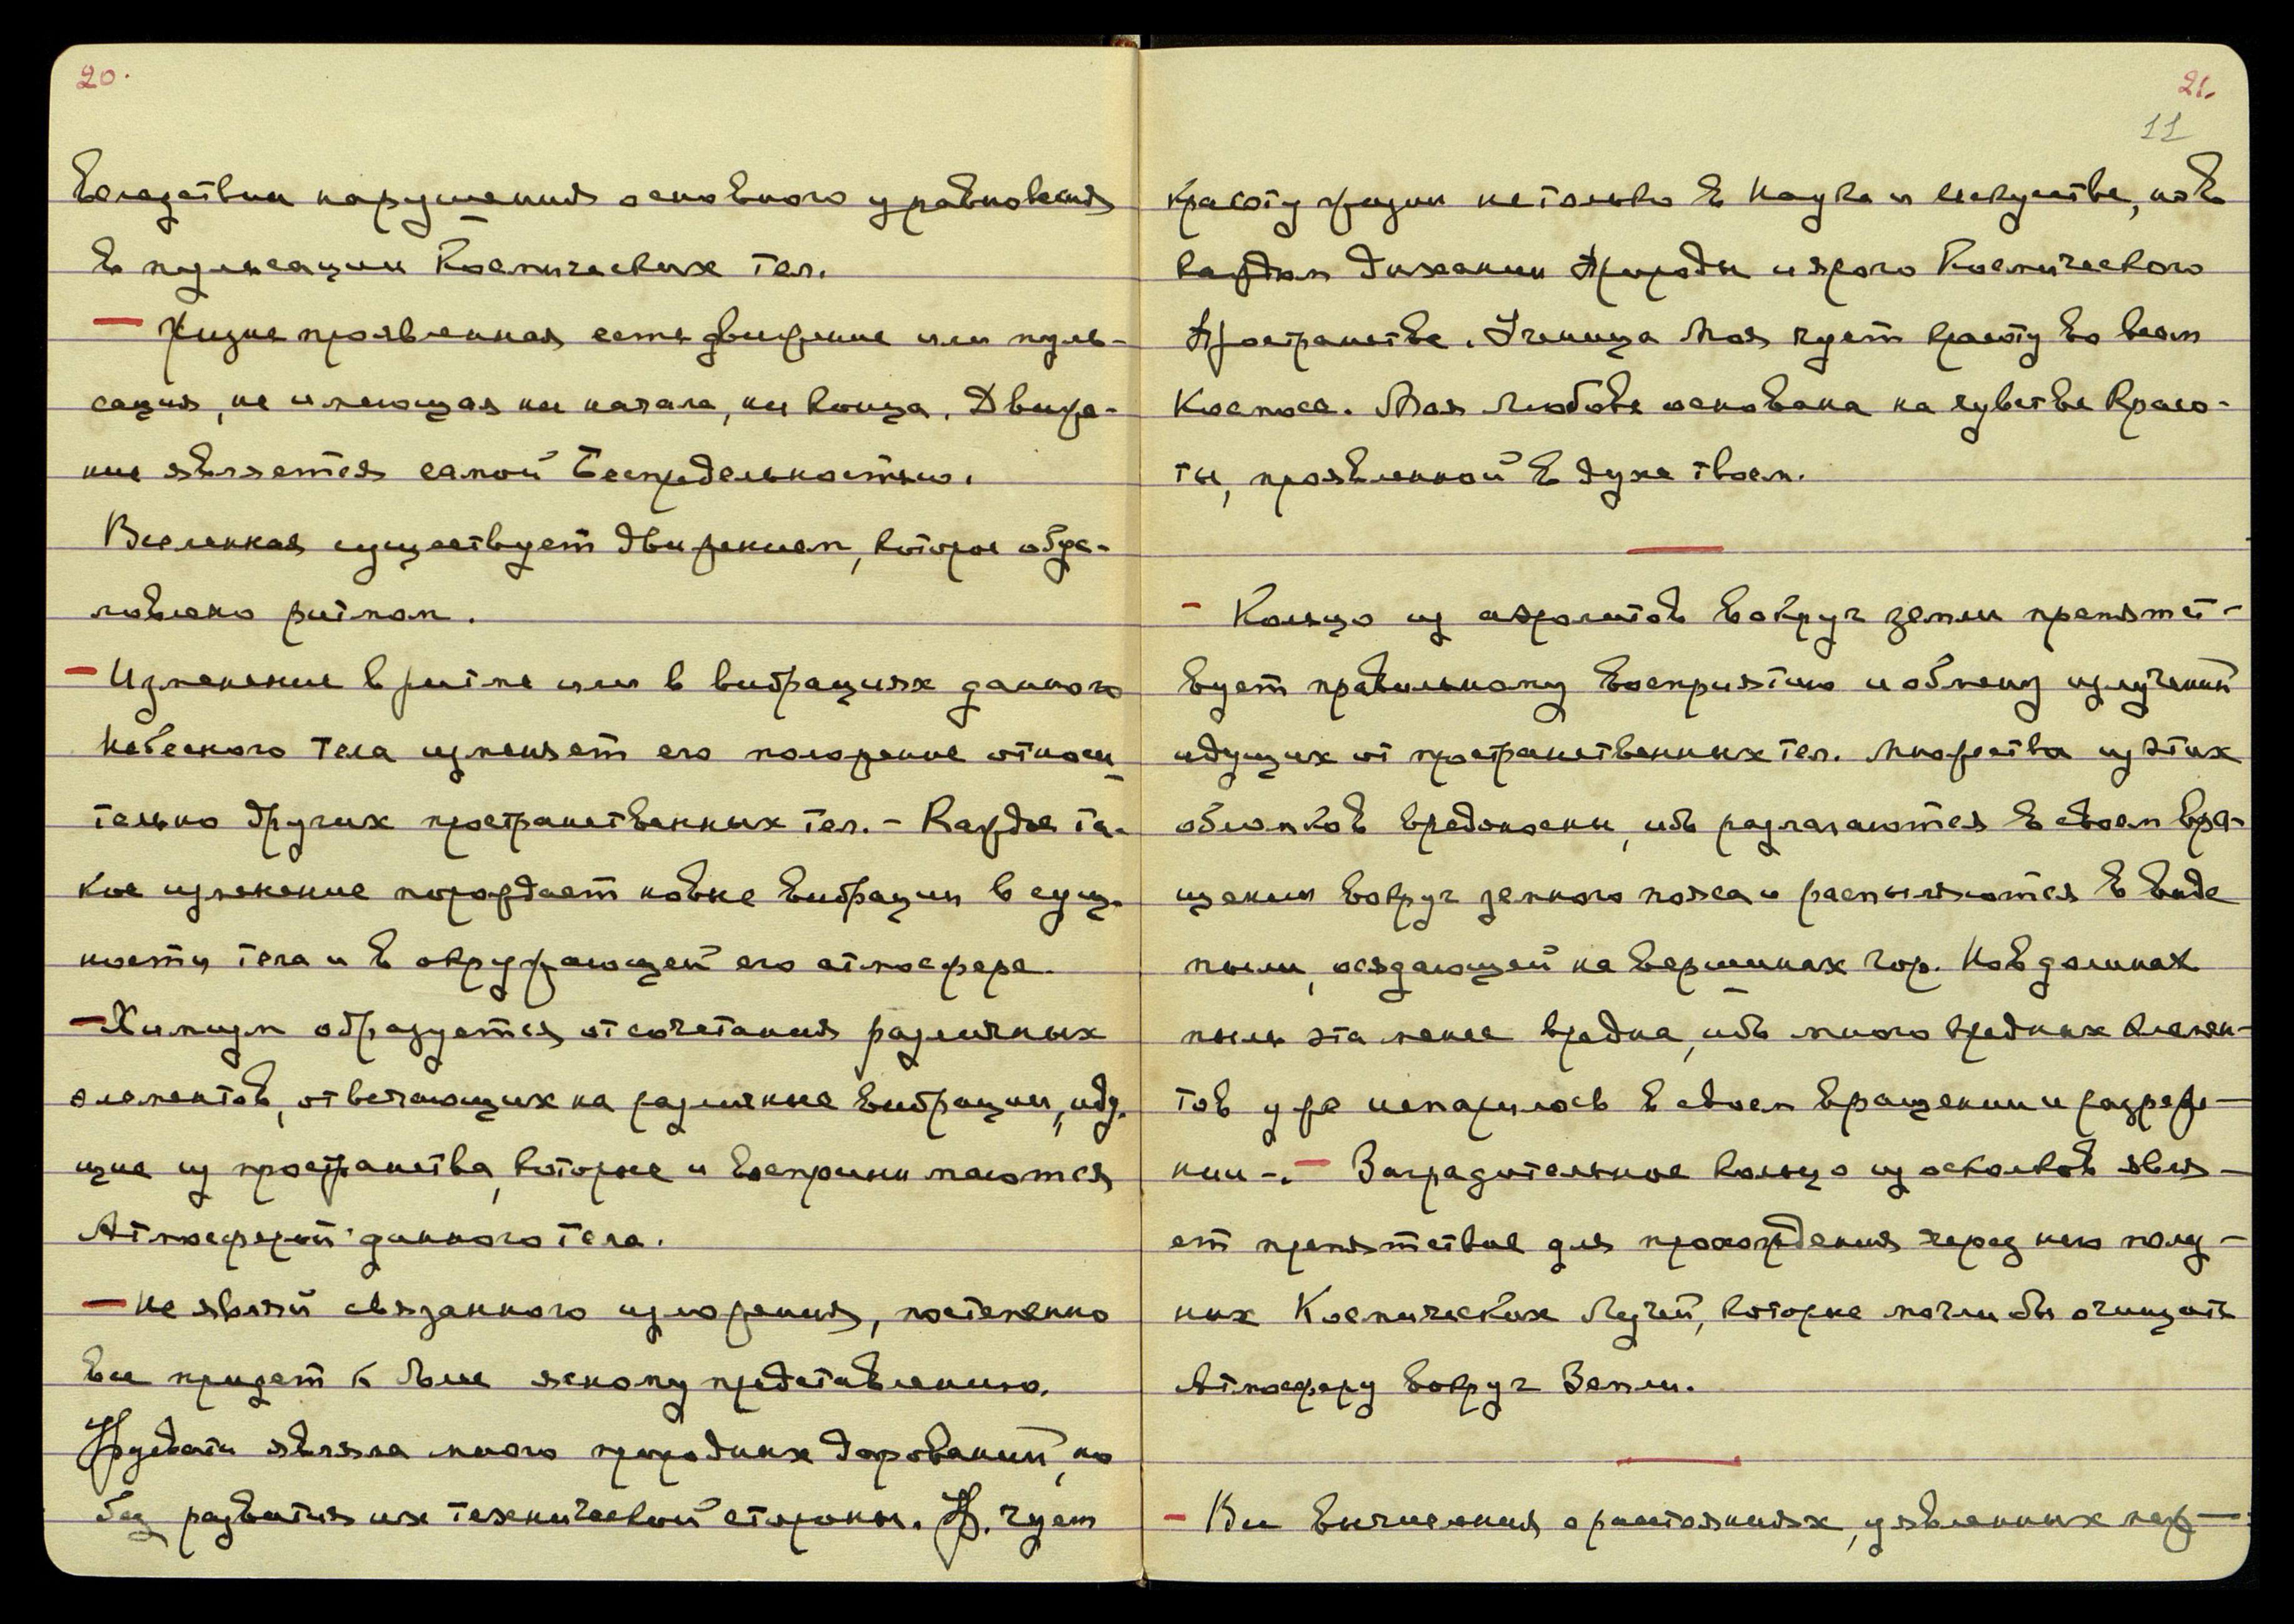 20.
вследствии нарушения основного равновесия
в пульсации Космических тел.
— Жизнь проявленная есть движение или пуль-
сация, не имеющая ни начала, ни конца. Движе-
ние является самой Беспредельностью.
Вселенная существует движением, которое обус-
ловлено ритмом.
— Изменение в ритме или в вибрациях данного
Небесного Тела изменяет его положение относи-
тельно других пространственных тел. – Каждое та-
кое изменение порождает новые вибрации в сущ-
ности тела и в окружающей его атмосфере.
— Химизм образуется от сочетания различных
элементов, отвечающих на различные вибрации, иду-
щие из пространства, которые и воспринимаются
Атмосферой данного тела.
— Не являй связанного изложения, постепенно
все придет к более ясному представлению.
Урусвати являла много природных дарований, но
без развития их технической стороны. У. чует
21.
11
красоту жизни не только в Науке и искусстве, но в
каждом дыхании Природы и ярого Космического
Пространства. Ученица Моя чует красоту во всем
Космосе. Моя Любовь основана на чувстве Красо-
ты, проявленной в духе твоем.
– Кольцо из аэролитов вокруг земли препятст-
вует правильному восприятию и обмену излучений
идущих от пространственных тел. Множества из этих
обломков вредоносны, ибо разлагаются в своем вра-
щении вокруг земного пояса и распыляются в виде
пыли, оседающей на вершинах гор. Но в долинах
пыль эта менее вредна, ибо много вредных элемен-
тов уже испарилось в своем вращении и разреже-
нии –. – Заградительное кольцо из осколков явля-
ет препятствие для прохождения через него нолу-
ных Космических Лучей, которые могли бы очищать
Атмосферу вокруг Земли.
– Все вычисления о расстояниях, уявленных меж-